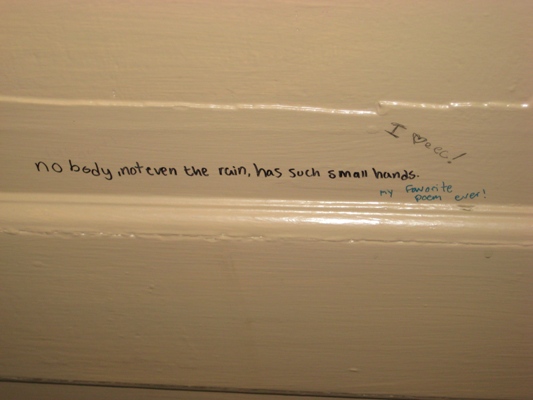 I ♡ eec!
nobody, not even the rain, has such small hands.
my favorite
poem ever!